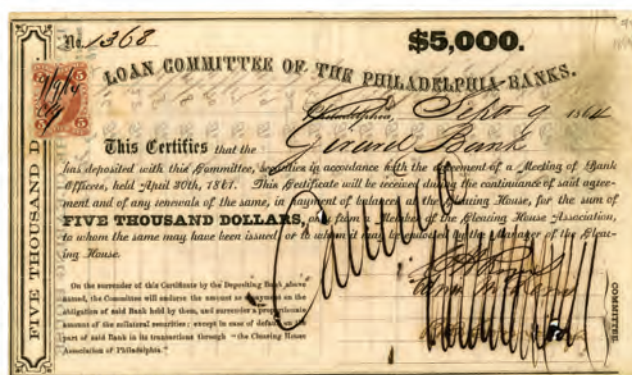 No. 1368
$5,000.
LOAN COMMITTEE OF THE PHILADELPHIA BANKS.
Philadelphia, Sept 9 1864
This Certifies that the Girard Bank
has deposited with this Committee, securities in accordance with the agreement of a Meeting of Bank
Officers, held April 30th, 1861. This Certificate will be received during the continuance of said agree-
ment and of any renewals of the same, in payment of balances at the Clearing House, for the sum of
FIVE THOUSAND DOLLARS, only from a Member of the Clearing House Association,
to whom the same may have been issued or to whom it may be endorsed by the Manager of the Clear-
ing House.
On the surrender of this Certificate by the Depositing Bank above
named, the Committee will endorse the amount as a payment on the
obligation of said Bank held by them, and surrender a proportionate
amount of the collateral securities; except in case of default on the
part of said Bank in its transactions through "the Clearing House
Association of Philadelphia."
COMMITTEE
FIVE THOUSAND D
5 5
5 5